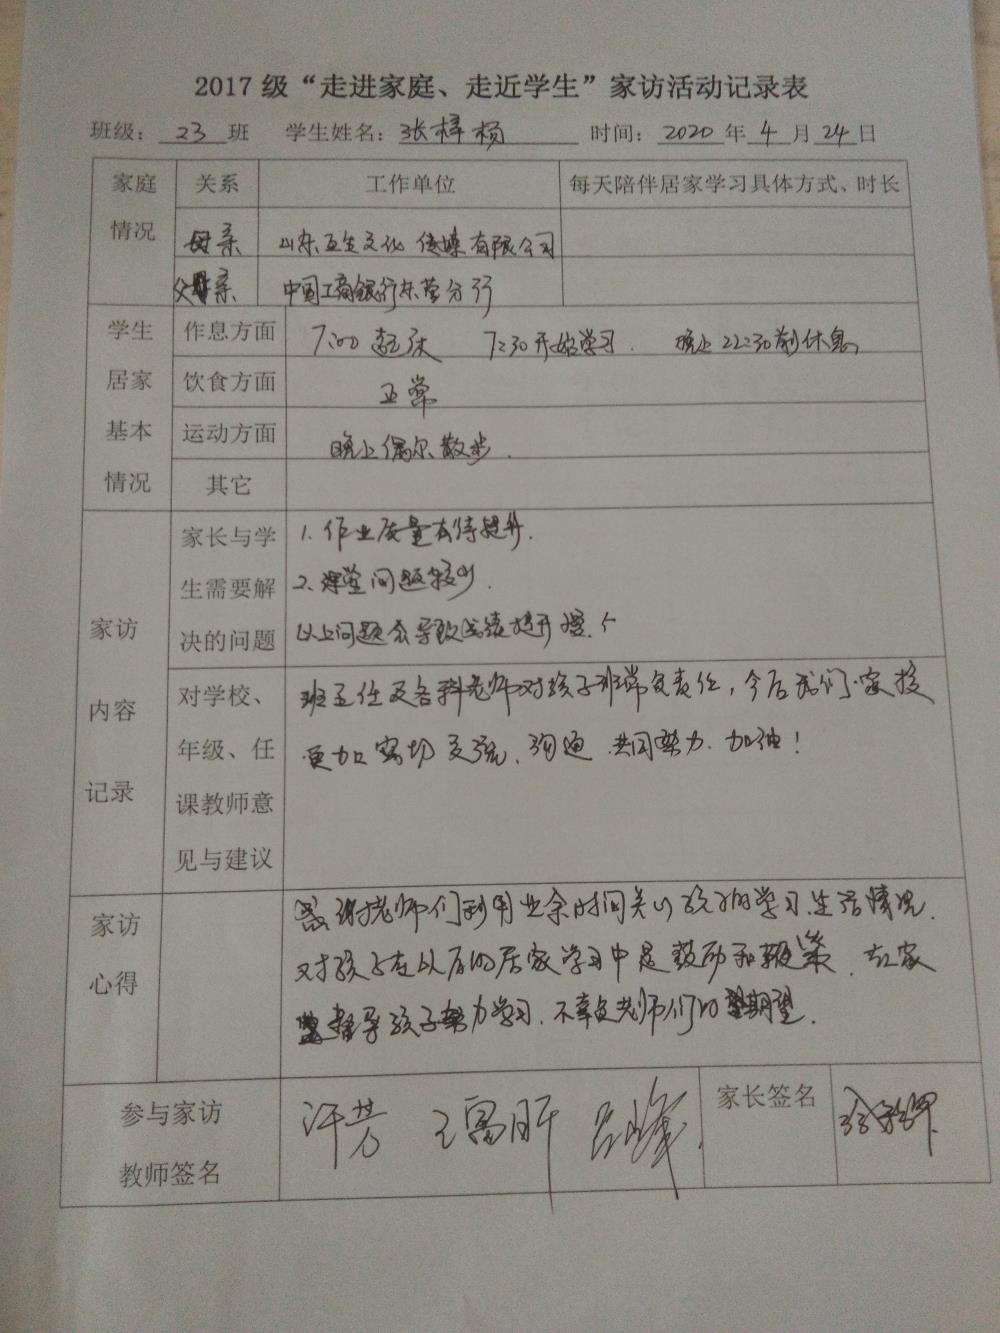 2017级“走进家庭、走近学生”家访活动记录表
班级：23班 学生姓名：张梓杨 时间：2020年4月24日
家庭情况 关系 工作单位 每天陪伴居家学习具体方式、时长
母亲 山东正生文化传媒有限公司
父亲 中国工商银行东营分行
学生居家基本情况 作息方面 7:00起床 7:30开始学习. 晚上22:30前休息
饮食方面 正常
运动方面 晚上偶尔散步.
其它
家访内容记录
家长与学生需要解决的问题
1、作业质量有待提升.
2、课堂问题较少.
以上问题会导致成绩提升慢.
对学校、年级、任课教师意见与建议
班主任及各科老师对孩子非常负责任，今后我们家校
更加密切交流、沟通、共同努力、加油！
家访心得
感谢老师们利用业余时间关心孩子的学习、生活情况.
对孩子在以后的居家学习中是鼓励和鞭策、在家
督导孩子努力学习、不辜负老师们的期望.
参与家访教师签名 许芳 家长签名